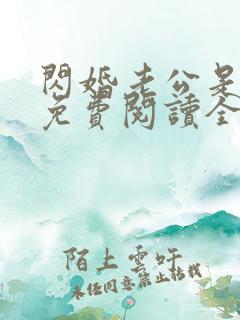 閃婚老公是
免費閱讀全
陌上雲吁
未經同意禁止轉載